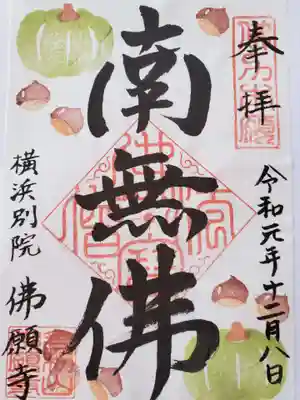 奉拝
令和元年十二月八日
南無佛
横浜別院
佛願寺